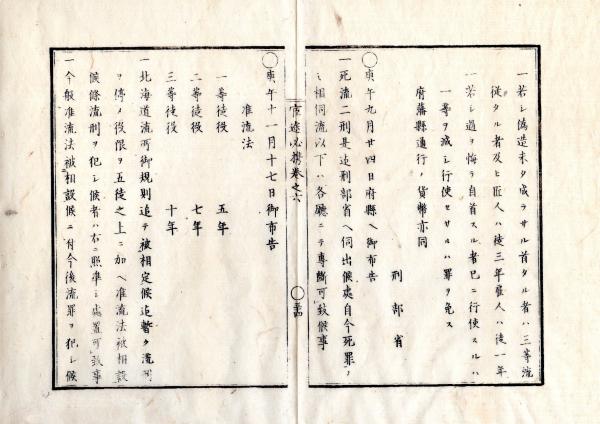 一若シ偽造未タ成ラサル首タル者ハ三等流
従タル者及ヒ匠人ハ徒三年雇人ハ徒一年
一若シ過ヲ悔ヲ自首スル者已ニ行使スルハ
一等ヲ減シ行使セサルハ罪ヲ免ス
府藩縣通行ノ貨幣亦同
刑部省
○庚午九月廿四日府縣ヘ御布告
一死流二刑是迄刑部省ヘ伺出候處自今死罪ノ
ミ相伺流以下ハ各廳ニテ専断可致候事
必携巻之六
○庚午十一月十七日御布告
准流法
一等徒役 五年
二等徒役 七年
三等徒役 十年
一北海道流所御規則追テ被相定候迄暫ク流刑
ヲ停メ役限ヲ五徒之上ニ加ヘ准流法被相設
候條流刑ヲ犯シ候者ハ右ニ照準シ處置可致事
一今般准流法被相設候ニ付今後流罪ヲ犯シ候